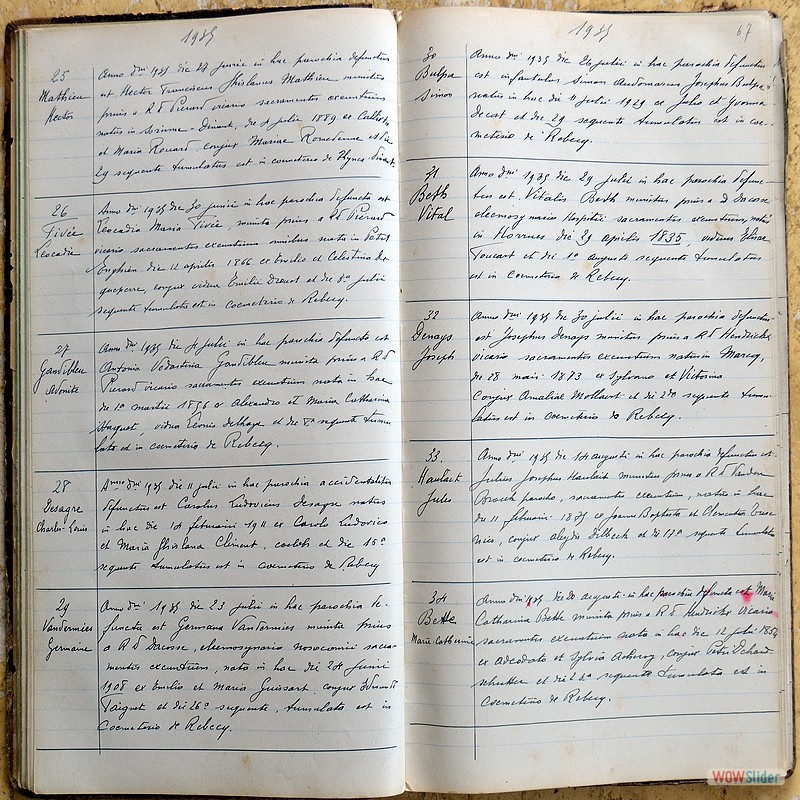 1935
25
Mathieu
Hector
Anno dni 1935 die 24 junii in hac parochia defunctus
est Hector Franciscus Ghislanus Mathieu munitus
prius a Rd Pierard vicario sacramentis exeuntium
natus in Dinant, die 4 julii 1889 ex
et Maria Rouard, conjux Mariae et die
29 sequente tumulatus est in coemeterio de
26
Tivée
Leocadie
Anno dni 1935 die 30 junii in hac parochia defuncta est
Leocadia Maria Tivée, munita prius a Rd Pierard
vicario sacramentis exeuntium omnibus nata in Petit
Enghien die 12 aprilis 1866 ex Emilio et Celestina De
conjux vidua Emilii Druet et die 3a julii
sequente tumulata est in coemeterio de Rebecq.
27
Gandibleu
Anno dni 1935 die 4 julii in hac parochia defuncta est
Antonia Vedastina Gandibleu munita prius a Rd
Pierard vicario sacramentis exeuntium nata in hac
die 1a martii 1856 ex Alexandro et Maria Catharina
Haquet, vidua Leonis Delhaye et die 7a sequente tumu-
lata est in coemeterio de Rebecq.
28
Desagre
Charles-Louis
Anno dni 1935 die 11 julii in hac parochia accidentaliter
defunctus est Carolus Ludovicus Desagre natus
in hac die 14 februarii 1911 ex Carolo Ludovico
et Maria Ghislana Clément, coelebs et die 15a
sequente tumulatus est in coemeterio de Rebecq
29
Vandermies
Germaine
Anno dni 1935 die 23 julii in hac parochia de-
functa est Germana Vandermies munita prius
a Rd Dacosse, eleemosynario nosocomii sacra-
mentis exeuntium, nata in hac die 24 junii
1908 ex Emilio et Maria Guissart, conjux
Taignet et die 26a sequente, tumulata est in
Coemeterio de Rebecq.
1935
67
30
Bulpa
Simon
Anno dni 1935 die julii in hac parochia defunctus
est infantulus Simon Audomarus Josephus Bulpa
natus in hac die 11 julii 1929 ex Julio et Yvonna
Decat et die 29 sequente tumulatus est in coe-
meterio de Rebecq.
31
Beth
Vital
Anno dni 1935 die 29 julii in hac parochia defunc-
tus est Vitalis Beth munitus prius a D Dacosse
eleemosynario Hospitii sacramentis exeuntium, natus
in Horrues die 29 aprilis 1835, viduus Elisae
Toucart et die 1a augusti sequente tumulatus
est in Coemeterio de Rebecq.
32
Denays
Joseph
Anno dni 1935 die 30 julii in hac parochia defunctus
est Josephus Denays munitus prius a Rd Hendrickx
vicario sacramentis exeuntium natus in Marcq,
die 28 maii 1873 ex Sylvano et Victoria
Conjux Amaliae Mollaert et die 2a sequente tumu-
latus est in coemeterio de Rebecq.
33
Haulait
Jules
Anno dni 1935 die 14 augusti in hac parochia defunctus est
Julius Josephus Haulait munitus prius a Rd Vanden
Broeck parocho, sacramentis exeuntium, natus in hac
die 11 februarii 1875 ex Joanne Baptista et Clementina
conjux et die 17a sequente tumulatus
est in coemeterio de Rebecq.
34
Bette
Marie Catherine
Anno dni 1935 die 20 augusti in hac parochia defuncta est Maria
Catharina Bette munita prius a Rd Hendrickx vicario
sacramentis exeuntium nata in hac die 12 julii 1854
ex Adeodato et Sylvia conjux Petri
et die 22a sequente tumulata est in
coemeterio de Rebecq.
WOWSlider